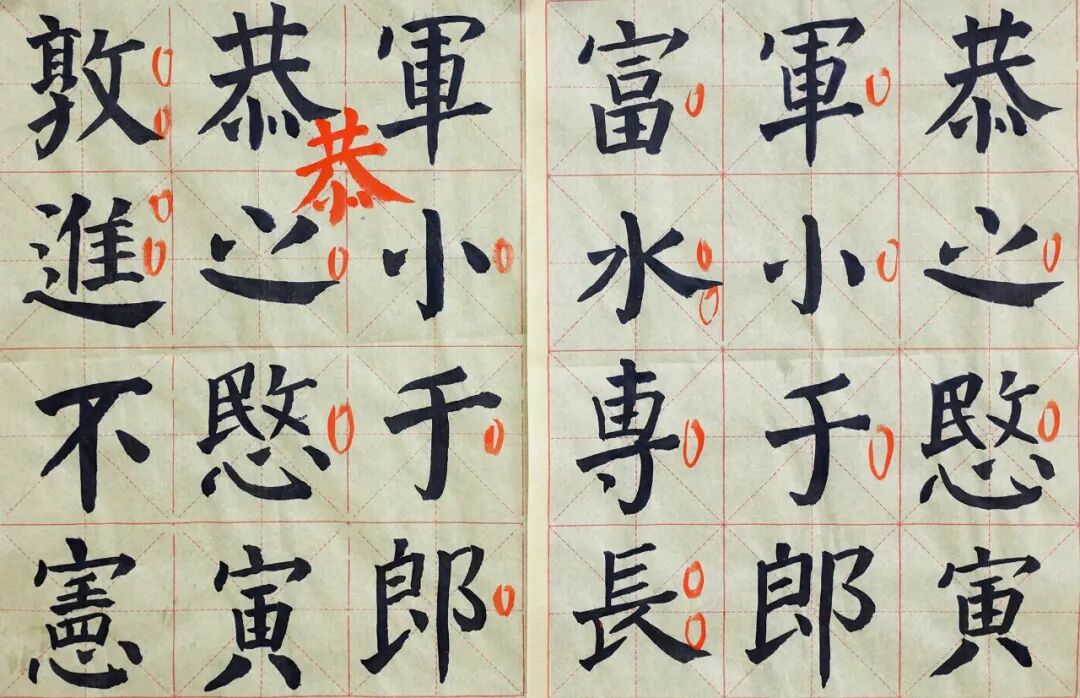 恭之愍寅
軍小于郎
富水専長
軍小于郎
恭之愍寅
恭
敦進不憲